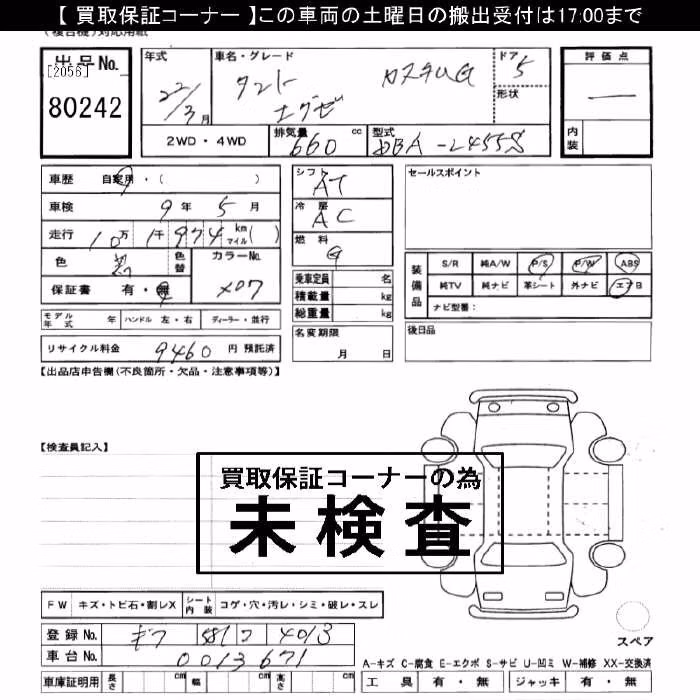 【 買取保証コーナー 】この車両の土曜日の搬出受付は17:00まで
(複合機)対応用紙
出品No.
[2056]
80242
年式
22/3月
車名・グレード
タント カスタムG
エグゼ
ドア
5
形状
評価点
—
内装
2WD・4WD
排気量 660 cc
型式 DBA-L455S
車歴 自家用・( )
車検 9年 5月
走行 10万 1千 974 km マイル( )
色
色替
カラーNo.
X07
保証書 有・無
モデル年式 年 ハンドル 左・右 ディーラー・並行
リサイクル料金 9460 円 預託済
シフト
AT
冷房
AC
燃料
G
乗車定員 名
積載量 kg
総重量 kg
名変期限
月 日
セールスポイント
装備品
S/R 純A/W P/S P/W ABS
純TV 純ナビ 革シート 外ナビ エアB
ナビ型番:
後日品
【出品店申告欄(不良箇所・欠品・注意事項等)】
【検査員記入】
買取保証コーナーの為
未検査
FW キズ・トビ石・割レX シート内装 コゲ・穴・汚レ・シミ・破レ・スレ
登録No. ギフ 581 コ 4013
車台No. 0013671
車庫証明用 長さ cm 幅 cm 高さ cm
スペア
A-キズ C-腐食 E-エクボ S-サビ U-凹ミ W-補修 XX-交換済
工具 有・無 ジャッキ 有・無